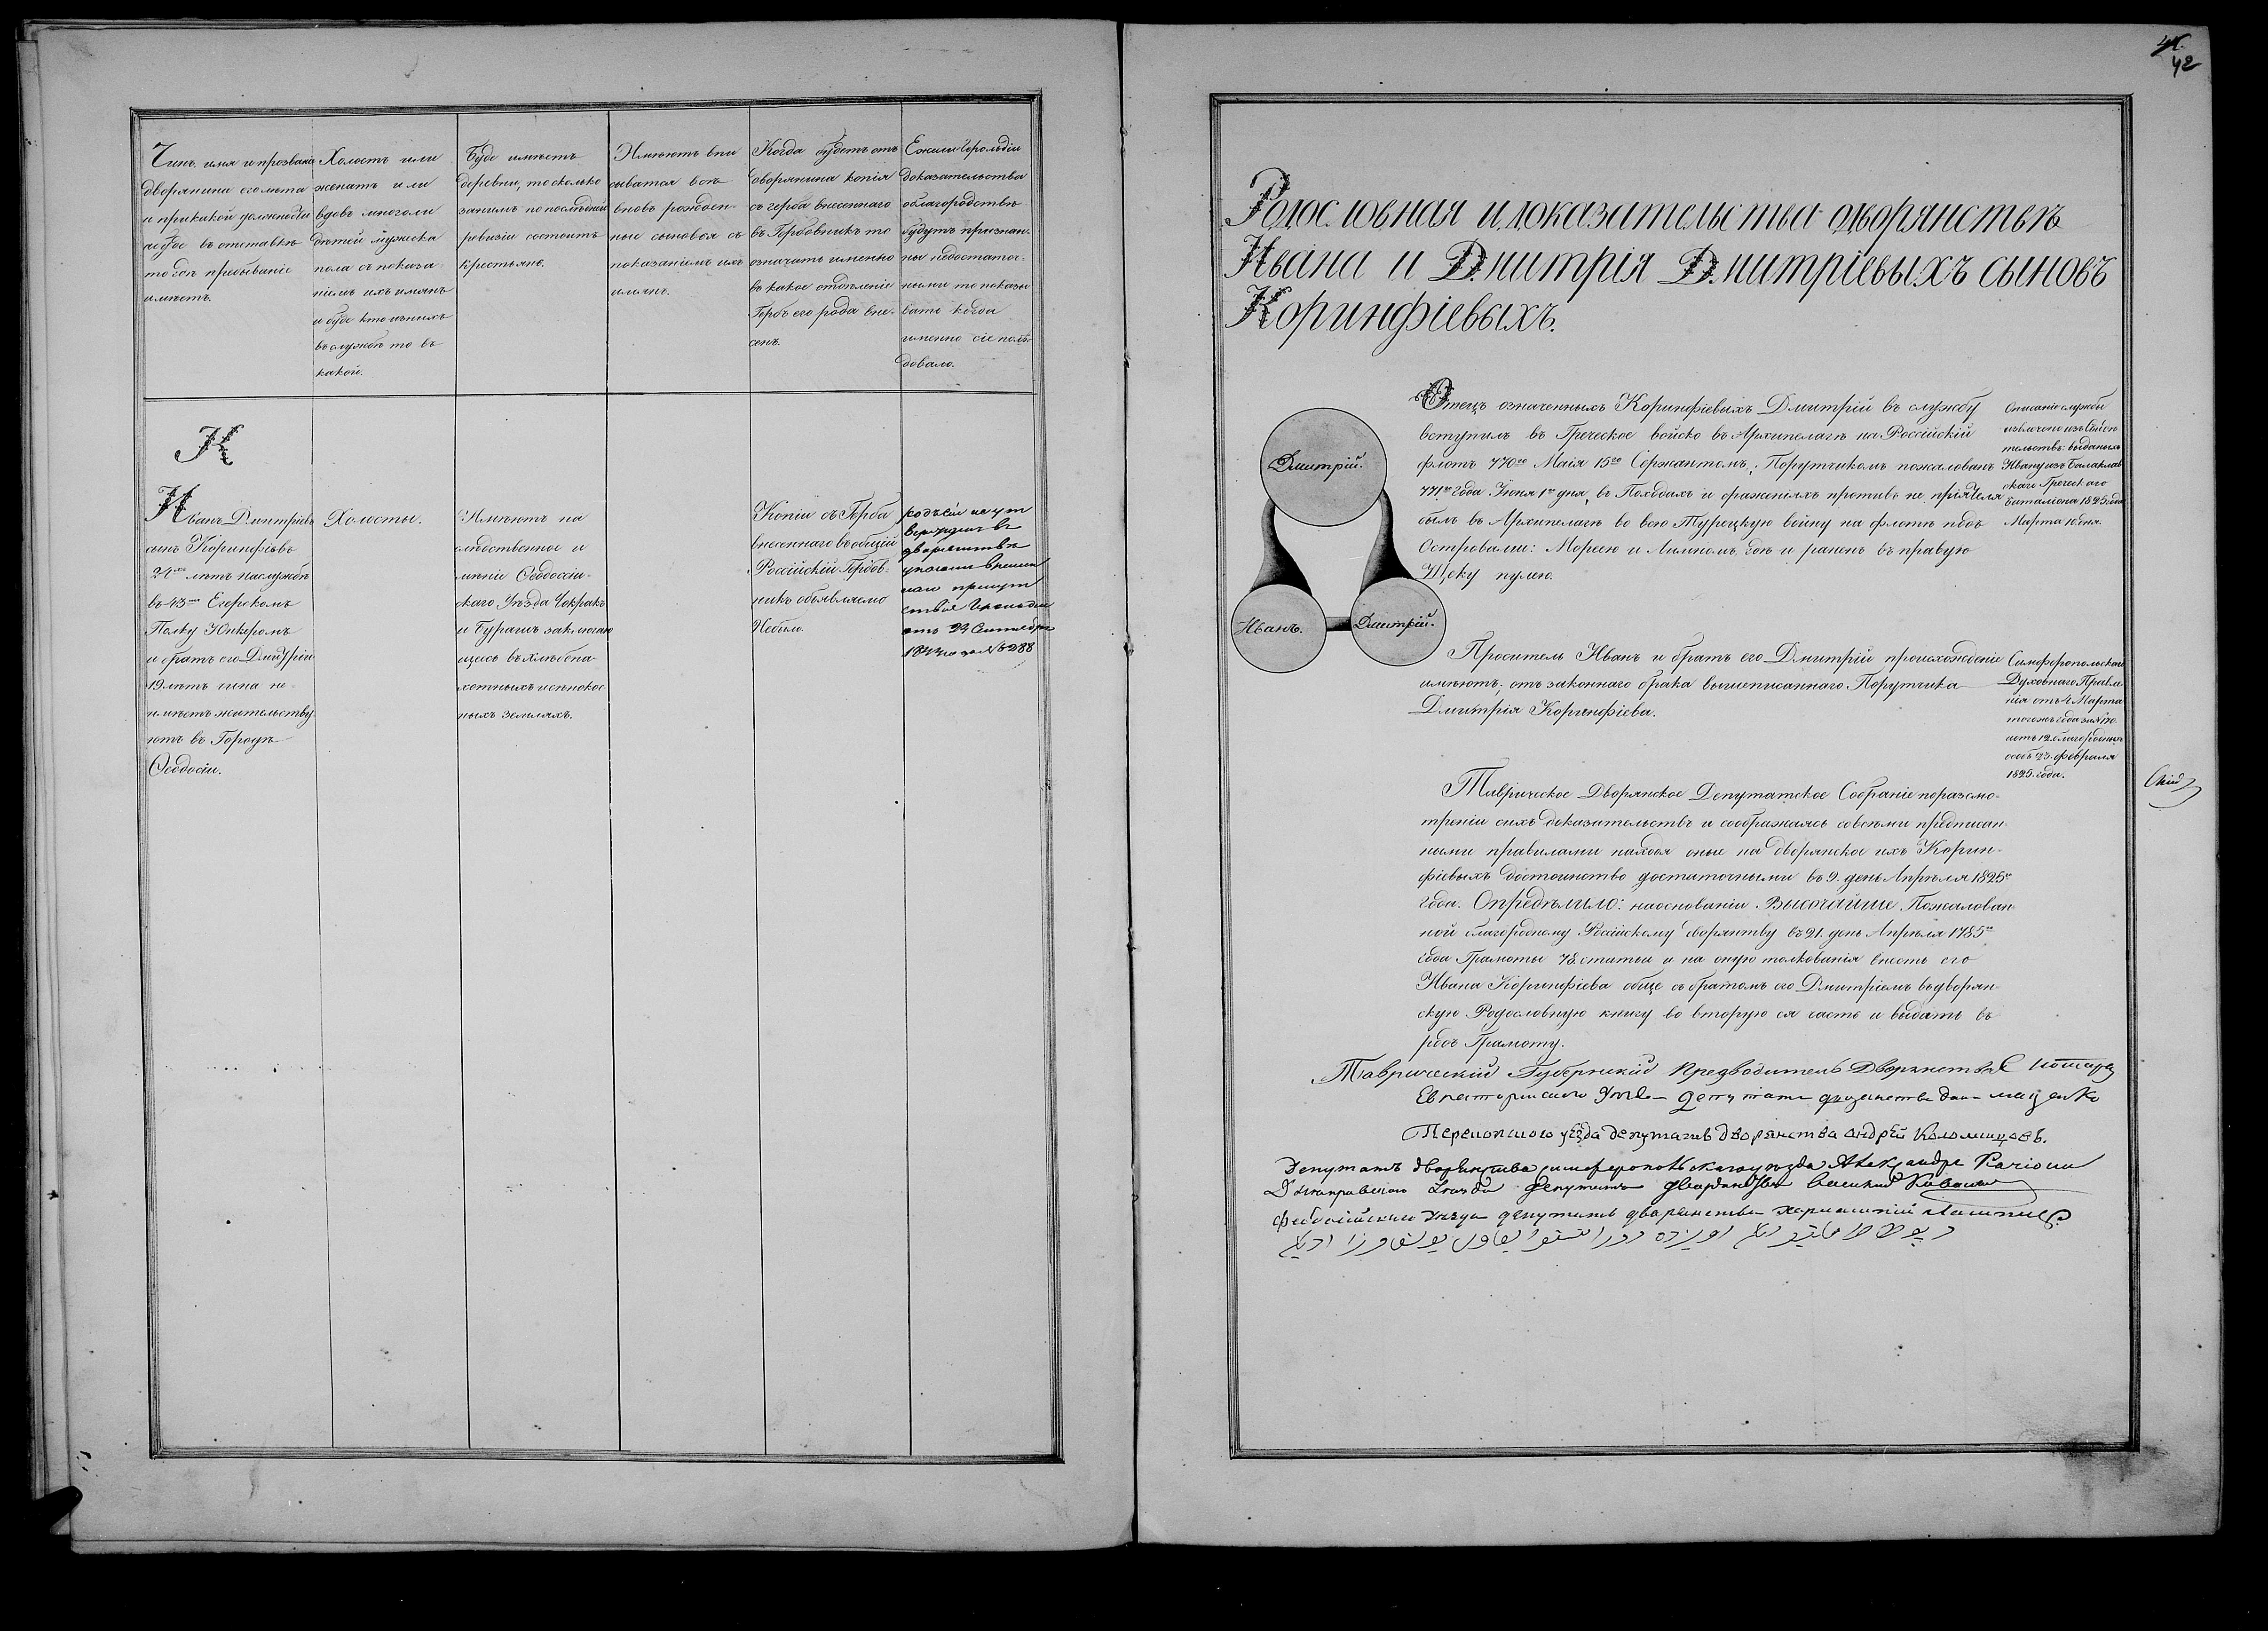 42
Чинъ, имя и прозваніе
дворянина его лета
и при какой должности
а буде въ отставкѣ
то гдѣ пребываніе
имѣетъ.
Холостъ или
женатъ или
вдовъ многоли
дѣтей мужеска
пола съ показа-
ніемъ ихъ имянъ
и буде кто изнихъ
въ службѣ то въ
какой.
Буде имѣетъ
деревни, то сколько
занимъ по послѣдней
ревизіи состоитъ
крестьянъ.
Имѣютъ впи
сыватся всѣ
вновь рожден-
ные сыновья съ
показаніемъ ихъ
имянъ.
Когда будетъ отъ
дворянина копія
съ герба внесеннаго
въ Гербовникъ то
означать именно
въ какое отдѣленіе
Гербъ его рода вне-
сенъ.
Ежели Герольдіи
доказательства
облагородствѣ
будутъ признан-
ны недостаточ-
ными то показы
вать когда
именно сіе послѣ-
довало.
К
Иванъ Дмитріевъ
сынъ Коринфіевъ
24хъ лѣтъ наслужбѣ
въ 43мъ Егерскомъ
Полку Юнкеромъ
и братъ его Дмитрій
19 лѣтъ чина не-
имѣетъ жительству
ютъ въ Городѣ
Ѳеодосіи.
Холосты.
Имѣютъ на
слѣдственное и
мѣніе Ѳеодосій-
скаго Уѣзда Чокракъ
и Бурашъ заключаю
щееся въ хлѣбопа-
хотныхъ исѣнокос
ныхъ земляхъ.
Копіи съ Герба
внесеннаго въ общій
Россійскій Гербов-
никъ объявляемо
Небыло.
родъ сей не ут
вержденъ въ
дворянствѣ
указомъ времен
наго присут
ствія Герольдіи
отъ 22 Сентября
1843 года № 6288
Родословная и доказательства о дворянствѣ
Ивана и Дмитрія Дмитріевыхъ сыновъ
Коринфіевыхъ.
Дмитрій.
Иванъ.
Дмитрій.
Отецъ означенныхъ Коринфіевыхъ Дмитрій въ службу
вступилъ въ Греческое войско въ Архипелагѣ на Россійскій
флотъ 770го Маія 15го Сержантомъ; Порутчикомъ пожалованъ
771го года Іюня 1го дня, въ Походахъ и сраженіяхъ противъ не пріятеля
былъ въ Архипелагѣ во всю Турецкую войну на флотѣ подъ
Островами: Мореею и Лимномъ гдѣ и раненъ въ правую
Щеку пулею.
Описаніе службы
извлечено изъ Свидѣ
тельствъ выданныхъ
Ивану изъ Балаклав
скаго Греческаго
Баталіона 1825 года
Марта 10 дня.
Проситель Иванъ и братъ его Дмитрій происхожденіе
имѣютъ; отъ законнаго брака вышеписаннаго Порутчика
Дмитрія Коринфіева.
Симферопольскаго
Духовнаго Правле
нія отъ 4 Марта
тогожъ года за № 170
и отъ 12. благородныхъ
особъ 23. февраля
1825. года.
Таврическое Дворянское Депутатское Собраніе поразсмо-
треніи сихъ доказательствъ и соображаясь совсѣми предписан-
ными правилами находя оные на дворянское ихъ Корин-
фіевыхъ достоинство достаточными въ 9. день Апрѣля 1825го
года. Опредѣлило: наоснованіи Высочайше Пожалован-
ной благородному Россійскому дворянтву въ 21. день Апрѣля 1785го
года Грамоты 78. статьи и на оную толкованія внесть его
Ивана Коринфіева обще съ братомъ его Дмитріемъ въ дворян-
скую Родословную книгу во вторую ея часть и выдать въ
родъ Грамоту.
Таврическій Губернскій Предводитель Дворянства
Евпаторійскаго Уѣзда депутатъ дворянства
Перекопскаго уѣзда депутатъ дворянства андрей Коломицовъ.
Депутатъ дворянства симферопольскаго уѣзда Александръ
Днѣпровскаго уѣзда депутатъ дворянства Василий
Феодосійскаго уѣзда депутатъ дворянства